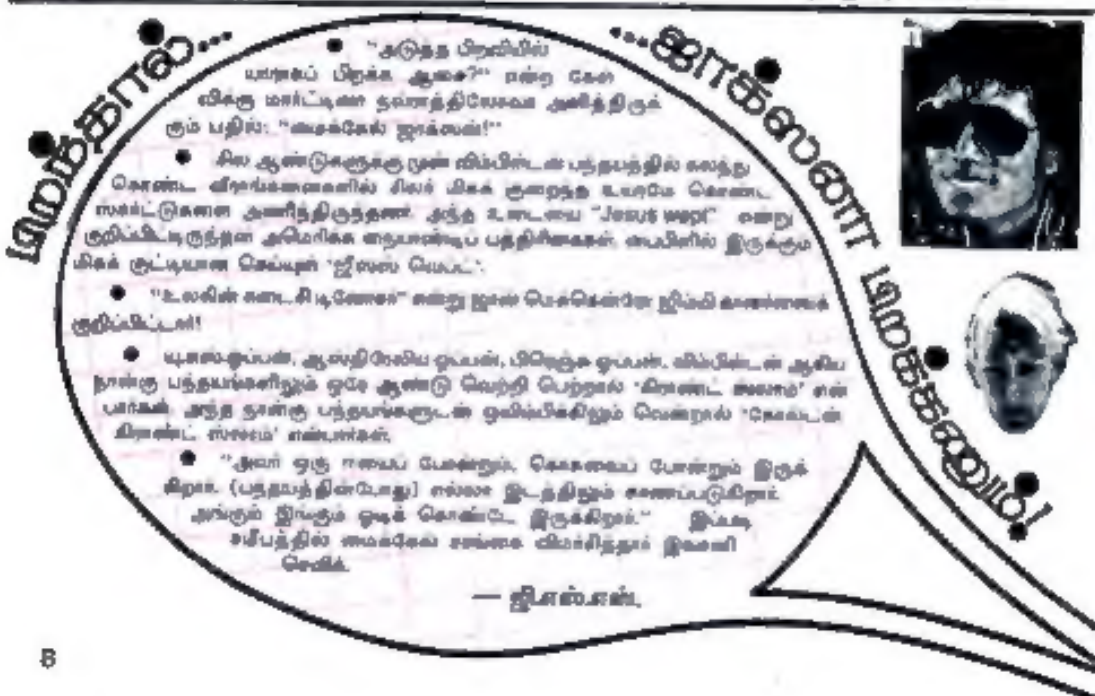 பிறந்தால்...
...ஜாக்ஸனா பிறக்கணும்!
"அடுத்த பிறவியில்
யாராகப் பிறக்க ஆசை?" என்ற கேள்
விக்கு மார்ட்டினா நவரத்திலோவா அளித்திருக்
கும் பதில்: "மைக்கேல் ஜாக்ஸன்!"
சில ஆண்டுகளுக்கு முன் விம்பிள்டன் பந்தயத்தில் கலந்து
கொண்ட வீராங்கனைகளில் சிலர் மிகக் குறைந்த உயரமே கொண்ட
ஸ்கர்ட்டுகளை அணிந்திருந்தனர். அந்த உடையை "Jesus wept" என்று
குறிப்பிட்டிருந்தன அமெரிக்க நையாண்டிப் பத்திரிகைகள். பைபிளில் இருக்கும்
மிகக் குட்டியான செய்யுள் 'ஜீஸஸ் வெப்ட்'.
"உலகின் கடைசி டினோசர்" என்று ஜான் மெக்கென்ரோ ஜிம்மி கானர்ஸைக்
குறிப்பிட்டார்!
யு.எஸ்.ஓப்பன், ஆஸ்திரேலிய ஓப்பன், பிரெஞ்சு ஓப்பன், விம்பிள்டன் ஆகிய
நான்கு பந்தயங்களிலும் ஒரே ஆண்டு வெற்றி பெற்றால் 'கிராண்ட் ஸ்லாம்' என்
பார்கள். அந்த நான்கு பந்தயங்களுடன் ஒலிம்பிக்கிலும் வென்றால் 'கோல்டன்
கிராண்ட் ஸ்லாம்' என்பார்கள்.
"அவர் ஒரு ஈயைப் போன்றும், கொசுவைப் போன்றும் இருக்
கிறார். (பந்தயத்தின்போது) எல்லா இடத்திலும் காணப்படுகிறார்.
அங்கும் இங்கும் ஓடிக் கொண்டே இருக்கிறார்." இப்படி
சமீபத்தில் மைக்கேல் சாங்கை விமர்சித்தார் இவானி
செவிக்.
— ஜி.எஸ்.எஸ்.
8